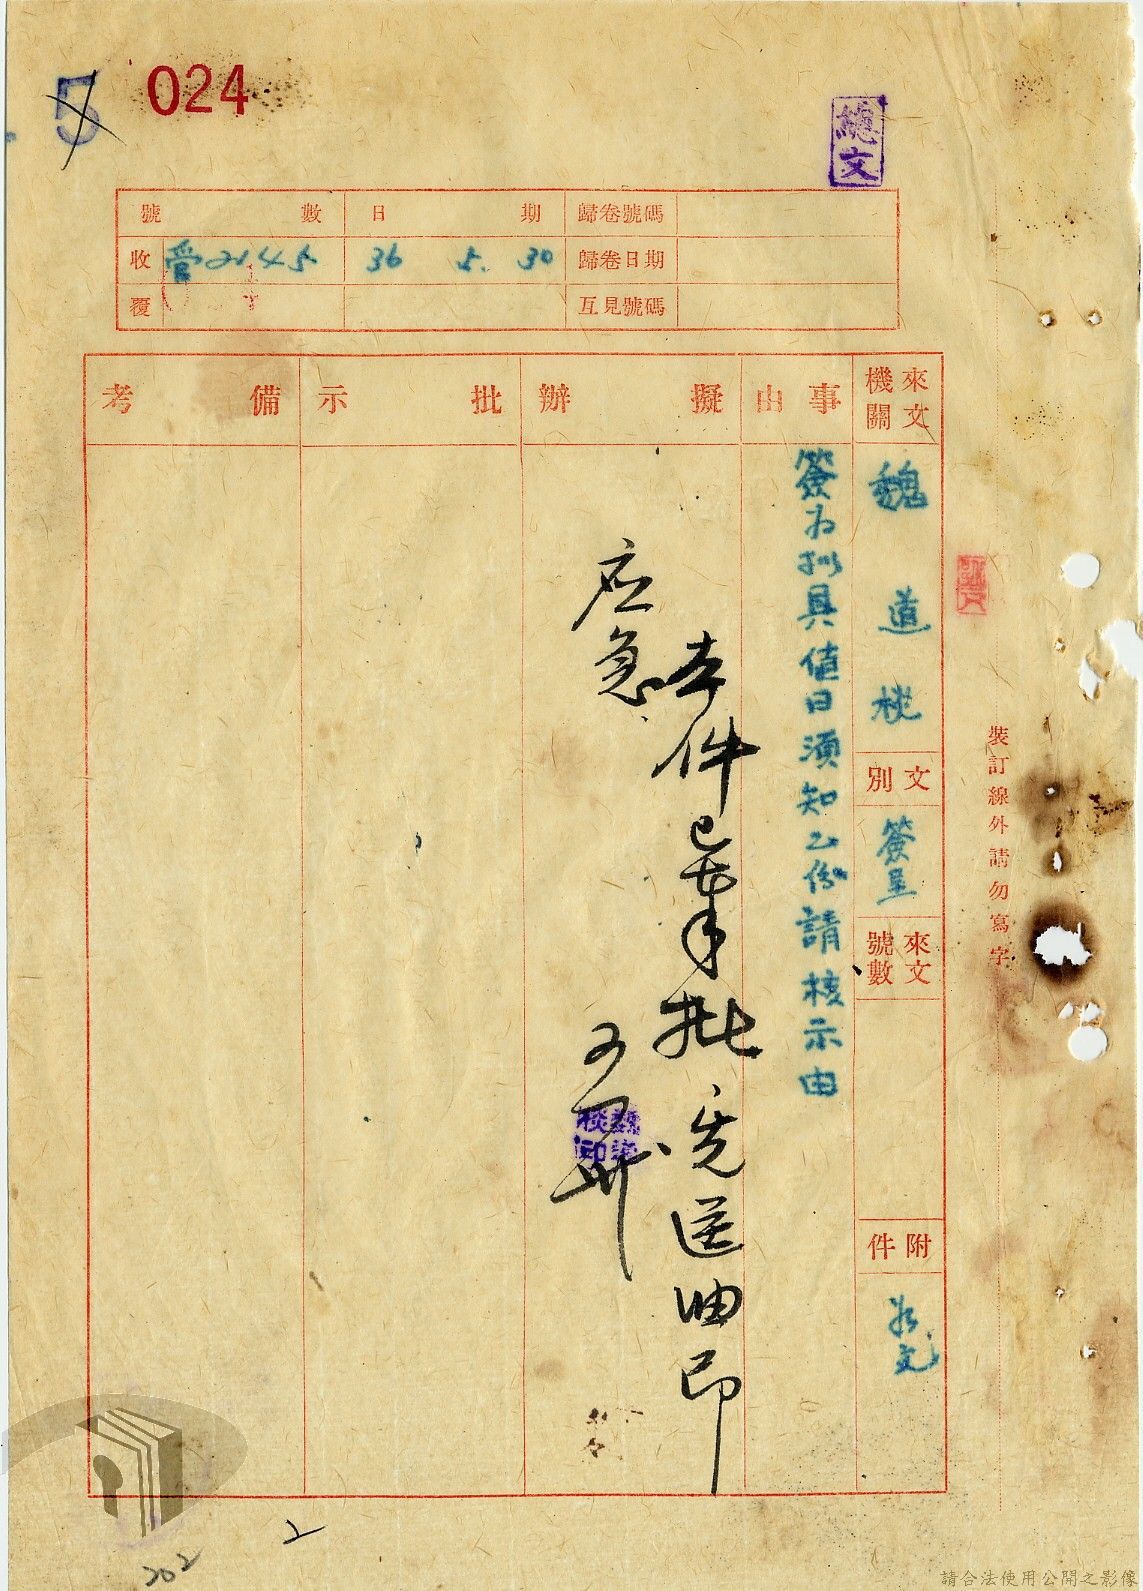 5
024
總文
號數
日期
歸卷號碼
收
管2145
36 5. 30
歸卷日期
覆
互見號碼
來文機關
魏道棪
文別
簽呈
來文號數
附件
如文
事由
簽為拟具值日須知乙份請核示由
擬辦
本件已奉批先送油印
应急
批示
備考
裝訂線外請勿寫字
2
202
請合法使用公開之影像